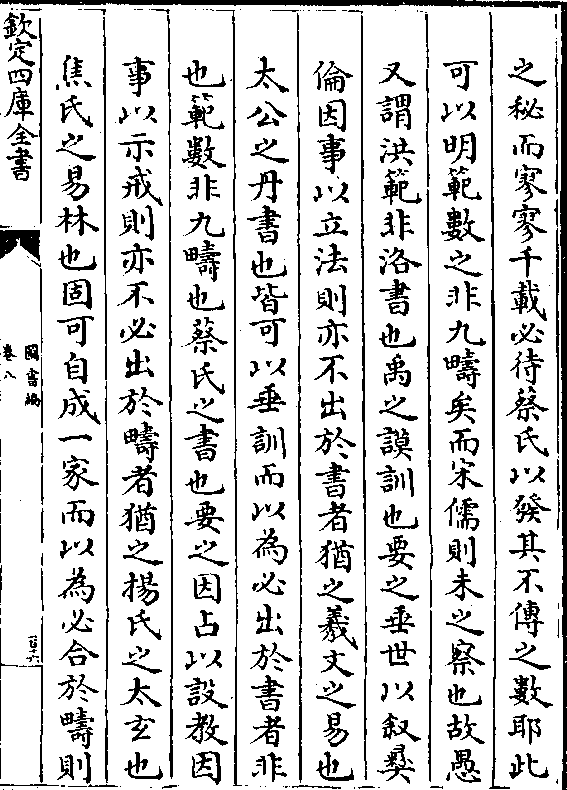 之秘而寥寥千載必待蔡氏以發其不傳之數耶此
可以明範數之非九疇矣而宋儒則未之察也故愚
又謂洪範非洛書也禹之謨訓也要之垂世以叙彛
倫因事以立法則亦不出於書者猶之羲文之易也
太公之丹書也皆可以垂訓而以為必出於書者非
也範數非九疇也蔡氏之書也要之因占以設教因
事以示戒則亦不必出於疇者猶之揚氏之太玄也
焦氏之易林也固可自成一家而以為必合於疇則
欽定四庫全書
圖書編
卷八